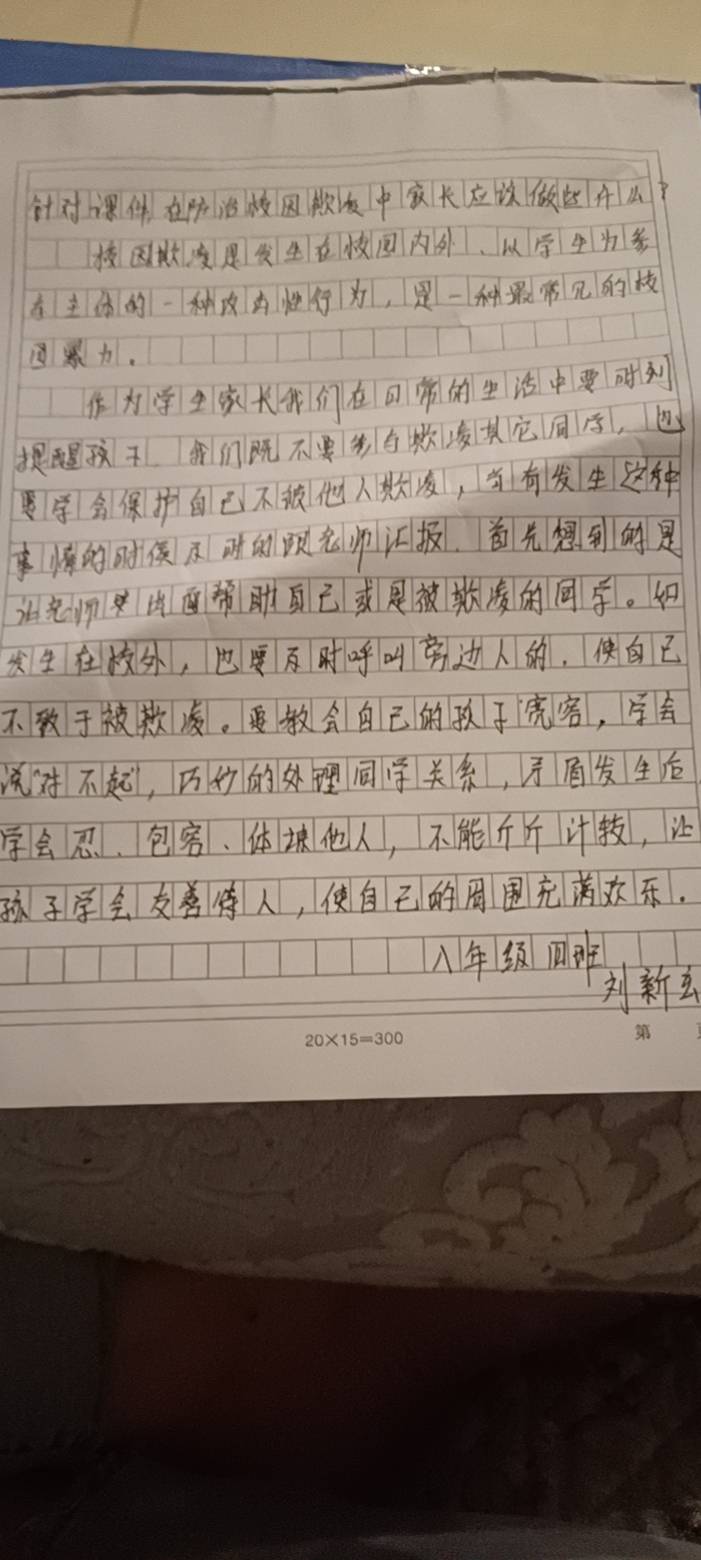 针对课件在防治校园欺凌中家长应该做些什么?
校园欺凌是发生在校园内外、以学生为参
与主体的一种攻击性行为,是一种最常见的校
园暴力。
作为学生家长我们在日常的生活中要时刻
提醒孩子、我们既不要参与欺凌其它同学,也
要学会保护自己不被他人欺凌,当有发生这种
事情的时候及时的跟老师汇报、首先想到的是
让老师出面帮助自己或是被欺凌的同学。如
发生在校外,也要及时呼叫旁边人的、使自己
不致于被欺凌。要教会自己的孩子宽容,学会
说"对不起",巧妙的处理同学关系,矛盾发生后
学会忍、包容、体谅他人,不能斤斤计较,让
孩子学会友善待人,使自己的周围充满欢乐.
八年级四班
刘新
20×15=300
第